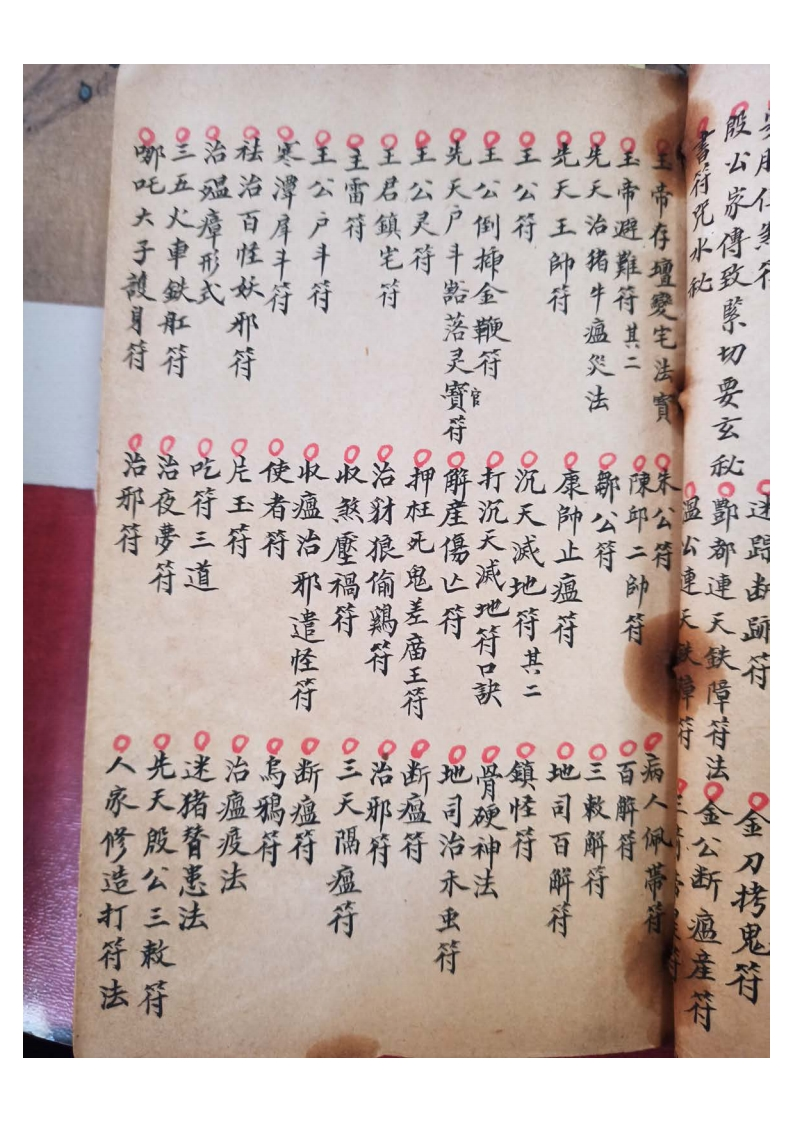 殷公家傳致緊切要玄秘
書符咒水秘
迷蹤断跡符
酆都連天鉄障符法
瘟公連天鉄障符
金刀拷鬼符
金公断瘟産符
玉帝存壇變宅法寶
玉帝避難符其二
先天治猪牛瘟災法
先天王帥符
王公符
王公倒插金鞭符
先天户斗豁落灵官寶符
王公灵符
王君鎮宅符
王雷符
王公户斗符
寒潭庠斗符
祛治百怪妖邪符
治瘟瘴形式
三五火車鉄肛符
哪吒大子護身符
朱公符
陳邱二帥符
鄒公符
康帥止瘟符
沉天滅地符其二
打沉天滅地符口訣
解産傷亡符
押枉死鬼差庙王符
治豺狼偷鷄符
收煞壓禍符
收瘟治邪遣怪符
使者符
片玉符
吃符三道
治夜夢符
治邪符
病人佩蒂符
百解符
三敕解符
地司百解符
鎮怪符
骨硬神法
地司治禾虫符
断瘟符
治邪符
三天隔瘟符
断瘟符
烏鴉符
治瘟疫法
迷猪替患法
先天殷公三敕符
人家修造打符法